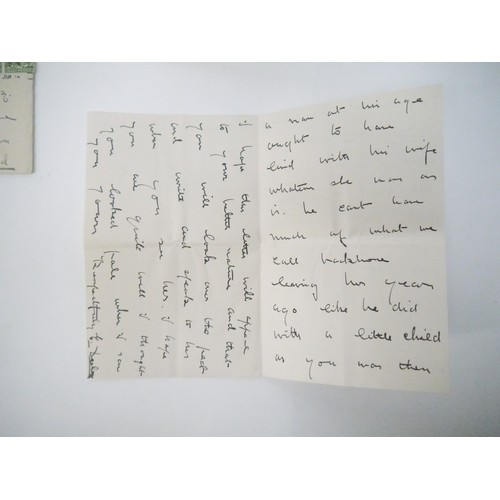 a man at his age
ought to have
lind with his wife
whatever she was or
is. he cant have
much of what we
call backbone
leaving her years
ago like he did
with a little child
as you was then
i hope this letter will appeal
to your better nature and that
you will look over the past
and write and speak to her
when you see her. i hope
you are quite well i thought
you looked pale when i saw
you yours Respectfully